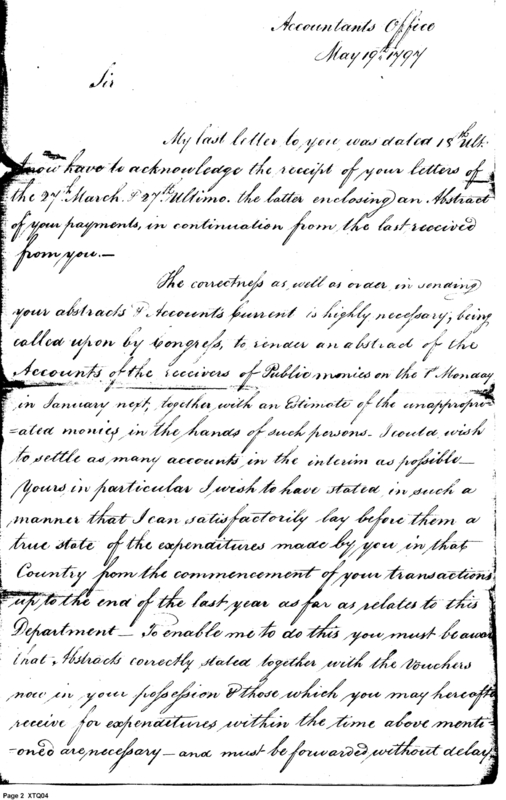 Accountants Office
May 19th. 1797
Sir
My last letter to you was dated 18th Ult.
I now have to acknowledge the receipt of your letters of
the 27th March & 27th Ultimo. the latter enclosing an Abstract
of your payments, in continuation from the last received
from you.—
The correctness as well as order in sending
your abstracts & Accounts Current is highly necessary, being
called upon by Congress, to render an abstract of the
Accounts of the receivers of Public monies on the 1st Monday
in January next, together with an Estimate of the unappropri-
=ated monies in the hands of such persons - I could wish
to settle as many accounts in the interim as possible—
Yours in particular I wish to have stated in such a
manner that I can satisfactorily lay before them a
true state of the expenditures made by you in that
Country from the commencement of your transactions
up to the end of the last year as far as relates to this
Department — To enable me to do this you must be awar
that Abstracts correctly stated together with the Vouchers
now in your possession & those which you may hereafte
receive for expenditures within the time above menti-
=oned are necessary — and must be forwarded without delay
Page 2 XTQ04